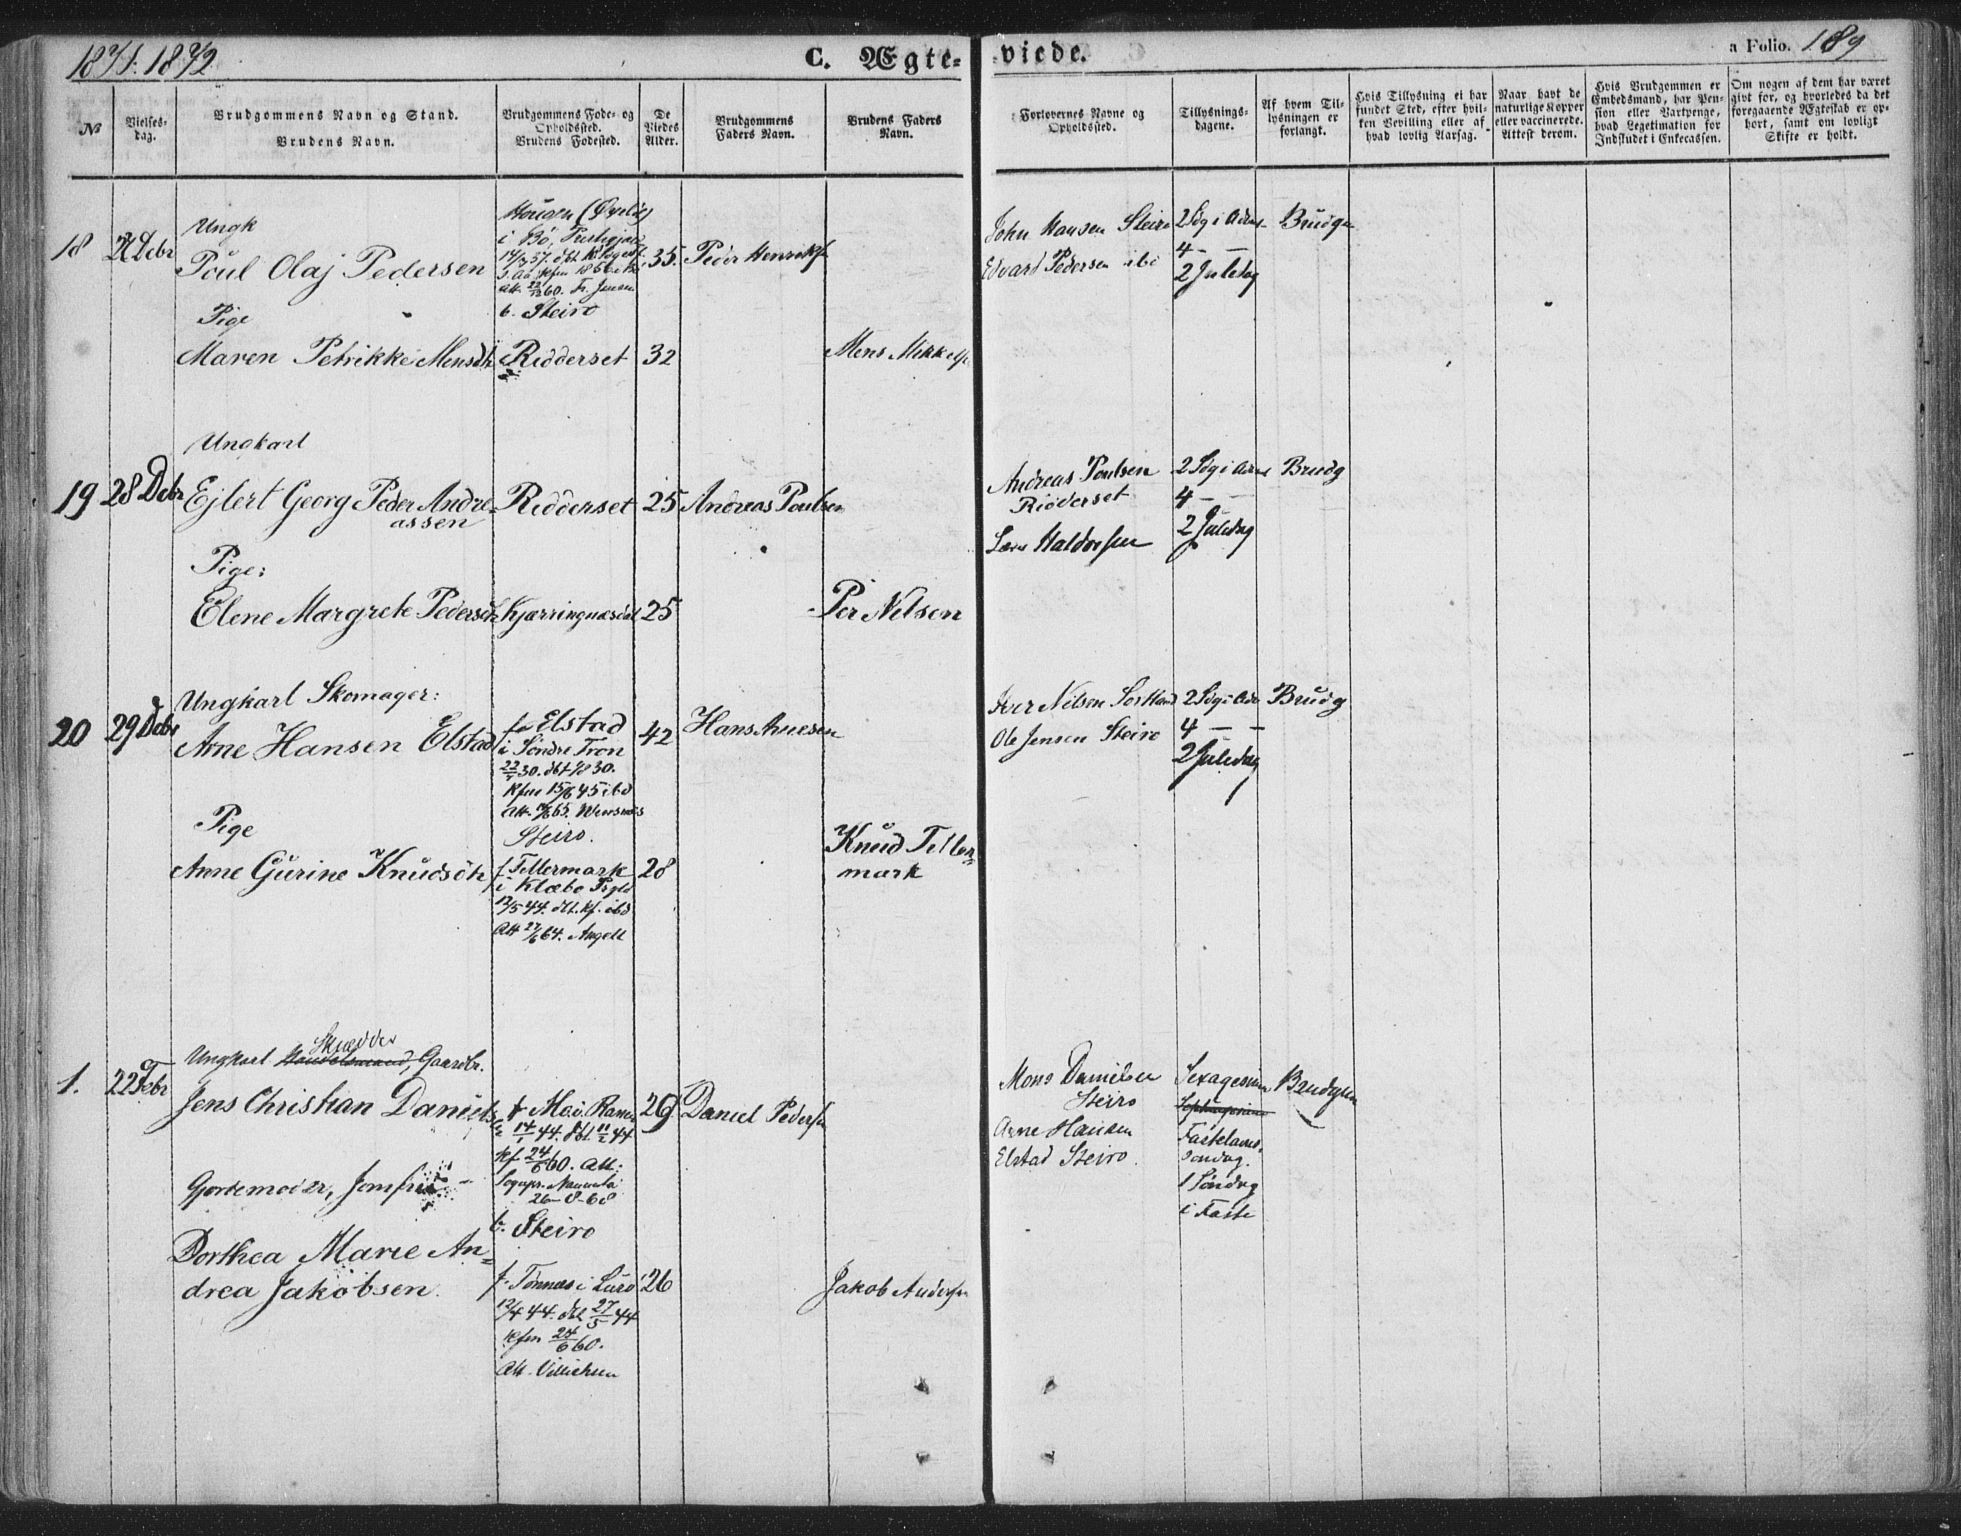 1871. 1872
C. Ægte-
viede.
a Folio. 189
No
Vielses-
dag.
Brudgommens Navn og Stand.
Brudens Navn.
Brudgommens Føde- og
Opholdssted.
Brudens Fødested.
De
Viedes
Alder.
Brudgommens
Faders Navn.
Brudens Faders
Navn.
Forlovernes Navne og
Opholdssted.
Tillysnings-
dagene.
Af hvem Til-
lysningen er
forlangt.
Hvis Tillysning ei har
fundet Sted, efter hvil-
ken Bevilling eller af
hvad lovlig Aarsag.
Naar havt de
naturlige Kopper
eller vaccinerede.
Attest derom.
Hvis Brudgommen er
Embedsmand, har Pen-
sion eller Vartpenge,
hvad Legitimation for
Indskudet i Enkecassen.
Om nogen af dem har været
givt før, og hvorledes da det
foregaaende Ægteskab er op-
hørt, samt om lovligt
Skifte er holdt.
18
Debr
Ungk
Poul Olaj Pedersen
Pige
Maren Petrikke Mensdtr
Hougen
i Bø,
b. Steiro
Ridderset
35.
32
Peder Henriks
Mens Mikkels
John Hansen Steiro
Edvard Pedersen ibi
2 Søg i Adv
4 - -
2 Juledag
Brudg
19
28 Debr
Ungkarl
Ejlert Georg Peder Andre-
assen
Pige:
Elene Margrete Pedersdtr
Ridderset
Kjærringnæsdal
25
25
Andreas Poulsen
Per Nelsen
Andreas Poulsen
Ridderset
Lars Haldorsen
2 Søg i Adv
4 - -
2 Juledag
Brudg
20
29 Debr
Ungkarl Skomager:
Arne Hansen Elstad
Pige
Anne Gurine Knudsdtr
fr Elstad
i Søndre Fron
22/4 30. dbt 30.
Kfm 15/6 45 ibd
Steiro.
f. Tillermark
i Klæbo Pgld
12/5 44. dbt. kf. ibd
Att 27/6 64. Angell
42
28
Hans Arnesen
Knud Tiller-
mark
Iver Nilsen Sortland
Ole Jensen Steiro
2 Søg i Adv
4 - -
2 Juledag
Brudg
1.
22 Febr
Skrædder
Ungkarl Handelsmand, Gaardbr.
Jens Christian Daniels
Gjordemoder, Jomfru
Dorthea Marie An-
drea Jakobsen.
f Mo i Ranen
14/1 44. dbt. 11/2 44
kf 24/6 60. Att:
26-8-68
b. Steiro
f. Tønnes i Lurø
12/4 44. dbt 27/5 44
Kfm 24/6 60.
29
26
Daniel Peders
Jakob Anders
Mons Danielsen
Steiro
Arne Hansen
Elstad Steiro.
Sexagesima
Septuagesima
Fastelavns-
søndag.
1 Søndag
i Faste
Brudgom